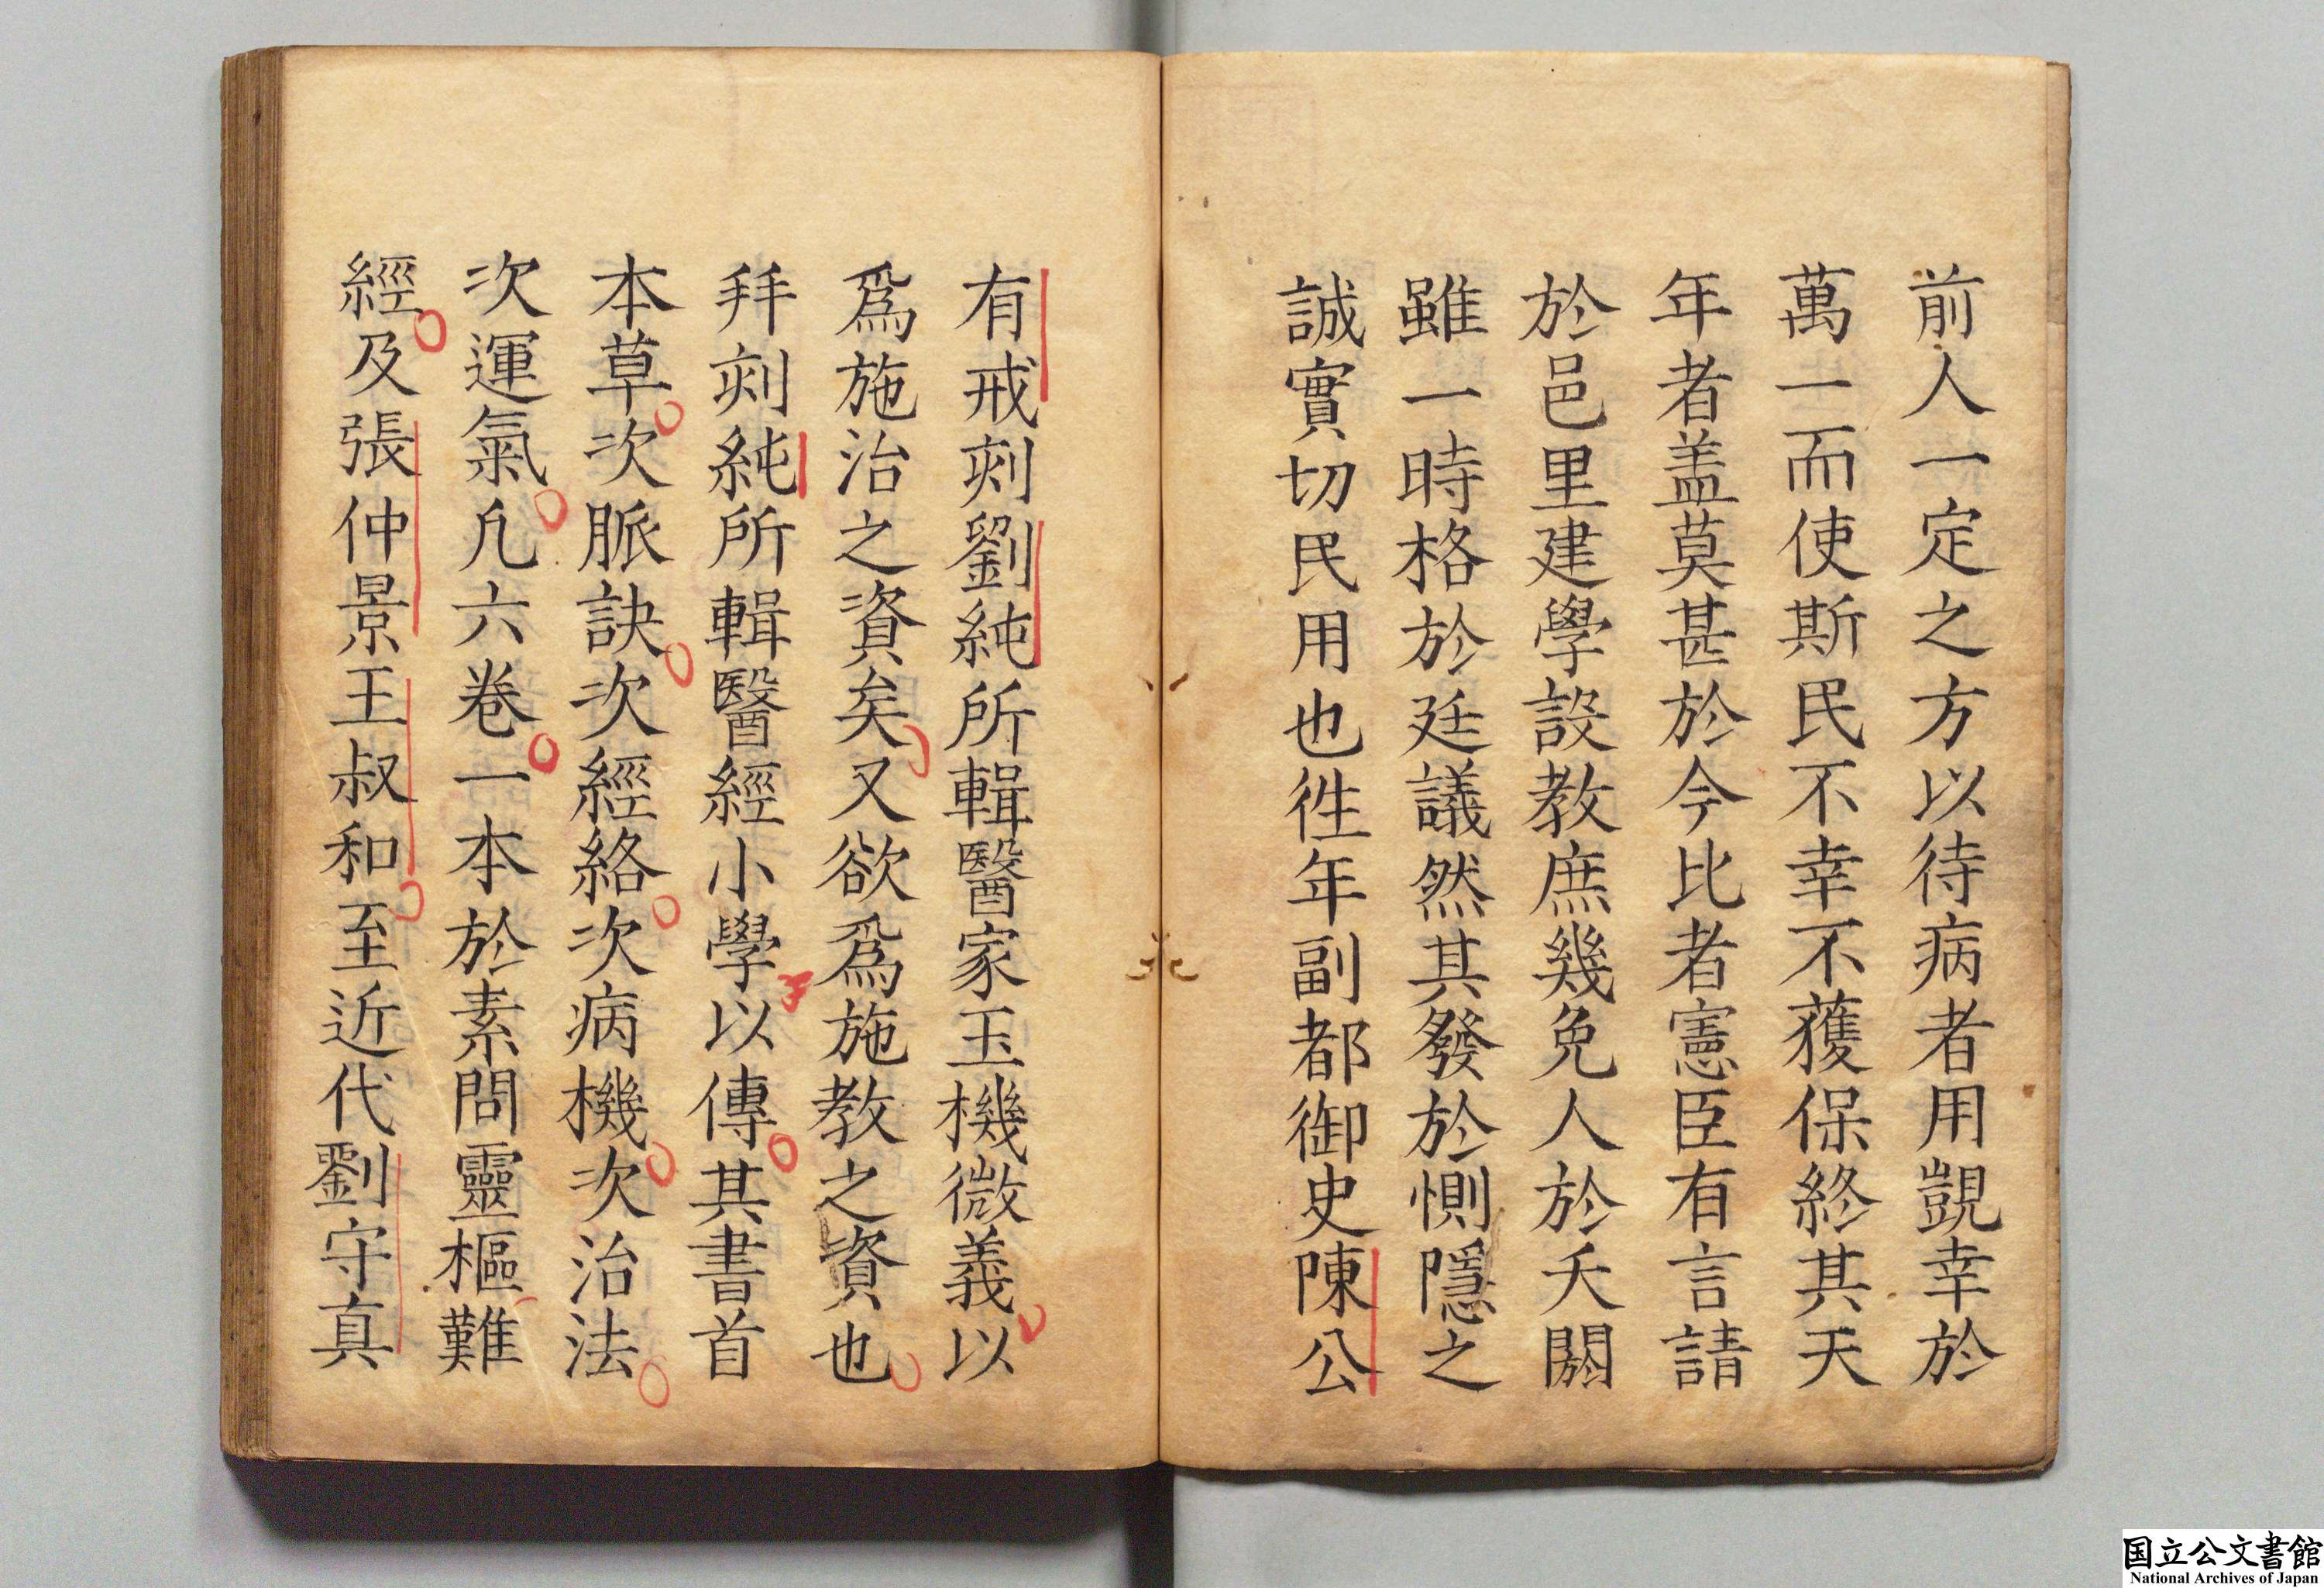 前人一定之方以待病者用覬幸於
萬一而使斯民不幸不獲保終其天
年者盖莫甚於今比者憲臣有言請
於邑里建學設教庶幾免人於夭閼
雖一時格於廷議然其發於惻隱之
誠實切民用也徃年副都御史陳公
有戒刻劉純所輯醫家玉機微義以
爲施治之資矣又欲爲施教之資也
拜刻純所輯醫經小學以傳其書首
本草次脈訣次經絡次病機次治法
次運氣凡六卷一本於素問靈樞難
經及張仲景王叔和至近代劉守真
国立公文書館
National Archives of Japan